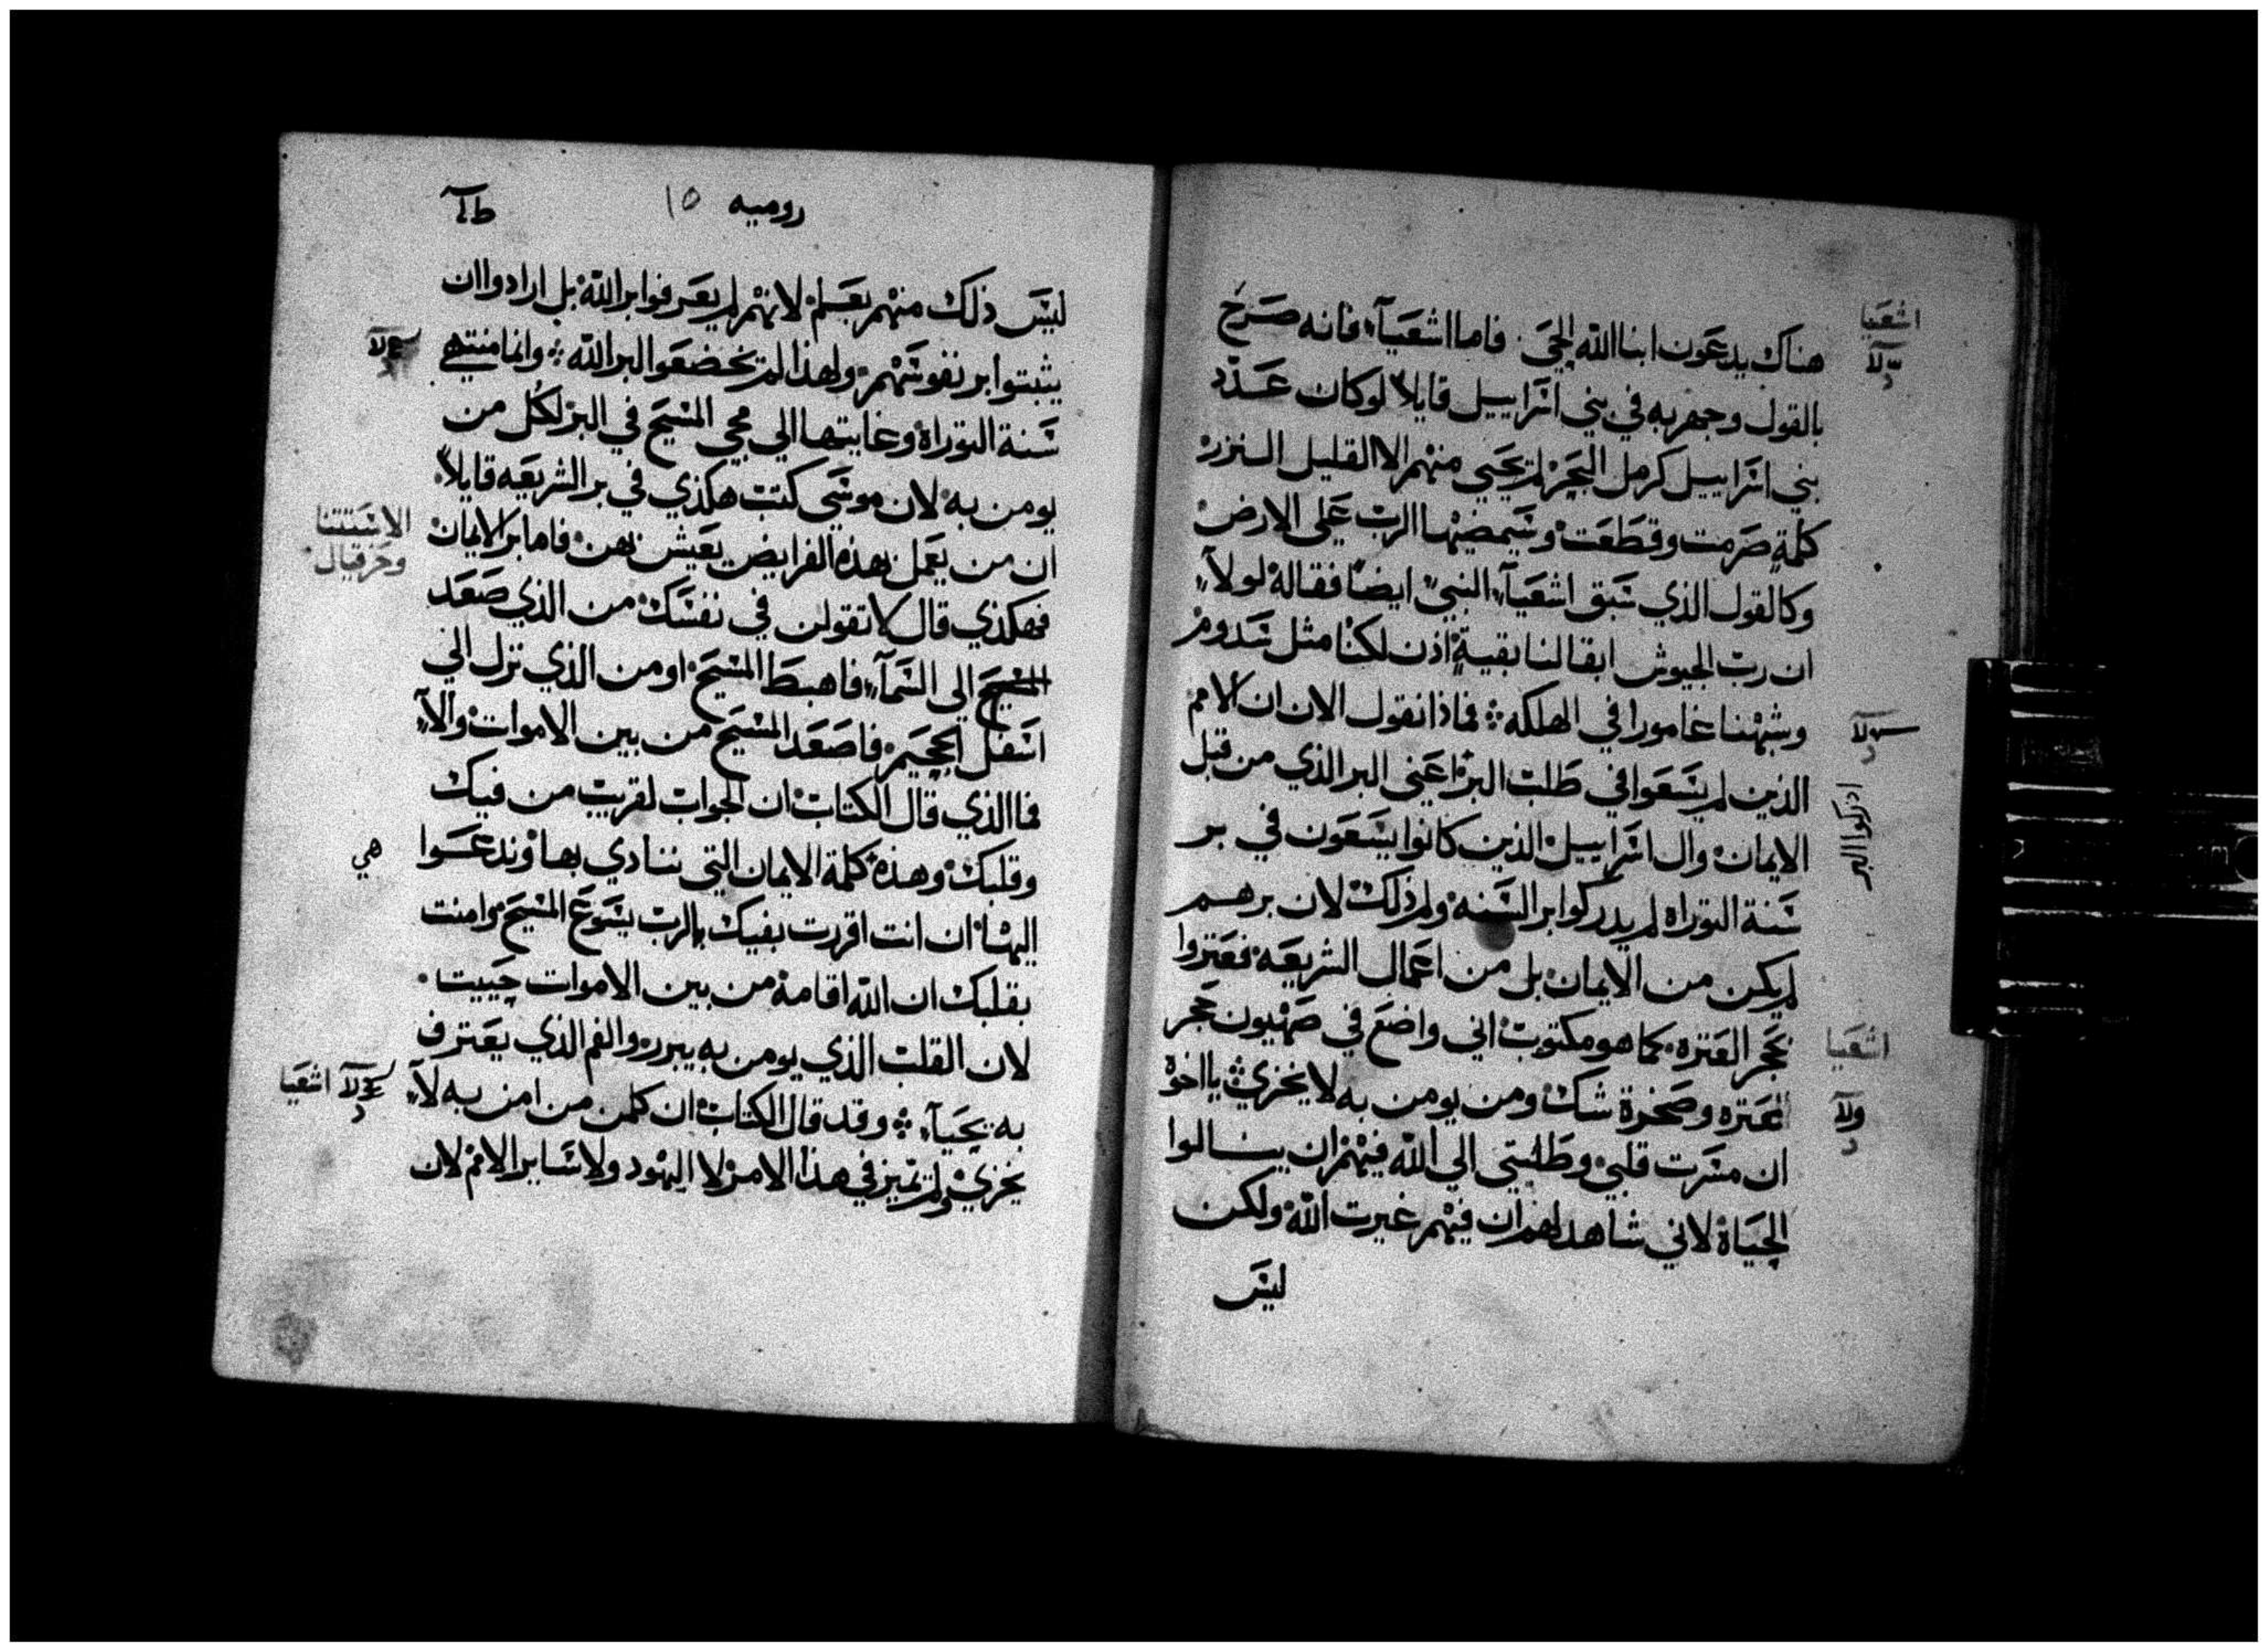 هناك يدعون ابنا الله الحي. فاما اشعيآء فانه صرخ
بالقول وجهر به في بني اسراييل قايلاً لو كان عدد
بني اسراييل كرمل البحر لم يحيي منهم الا القليل النزر
كلمة صرمت وقطعت وسيمضيها الرب علي الارض
وكالقول الذي سبق اشعيآء النبي ايضا فقاله لولآء
ان رب الجيوش ابقا لنا بقية اذن لكنا مثل سدوم
وشبهنا غامورا في الهلكه فماذا نقول الان ان الامم
الذين لم يسعوا في طلب البر اعني البر الذي من قبل
الايمان وال اسراييل الذين كانوا يسعون في بر
سنة التوراة لم يدركوا بر السنه ولم ذلك لان برهم
لم يكن من الايمان بل من اعمال الشريعه فعتروا
بحجر العتره كما هو مكتوب اني واضع في صهيون حجر
العتره وصخرة شك ومن يومن به لا يخزي يا اخوة
ان مسرت قلبي وطلبتي الي الله فيهم ان ينالوا
الحياة لاني شاهد لهم ان فيهم غيرت الله ولكن
ليس
اشعيا
ادركوا البر
اشعيا
روميه ١٥
ليس ذلك منهم بعلم لانهم لم يعرفوا بر الله بل ارادوا ان
يثبتوا بر نفوسهم ولهذا لم يخضعوا لبر الله وانما منتهي
سنة التوراة وغايتها الي مجي المسيح في البر لكل من
يومن به لان موسي كتب هكذي في بر الشريعه قايلاً
ان من يعمل بهذه الفرايض يعيش بهن فاما بر الايمان
فهكذي قال لا تقولن في نفسك من الذي صعد
المسيح الي السمآء فاهبط المسيح او من الذي نزل الي
اسفل الجحيم فاصعد المسيح من بين الاموات والآء
فما الذي قال الكتاب ان الجواب لقريب من فيك
وقلبك وهذه كلمة الايمان التي ننادي بها وندعوا
اليها ان انت اقررت بفيك بالرب يسوع المسيح وامنت
بقلبك ان الله اقامه من بين الاموات حييت.
لان القلب الذي يومن به يبرر والفم الذي يعترف
به يحيآء وقد قال الكتاب ان كلمن من امن به لآء
يخزي ولم يميز في هذا الامر لا اليهود ولا ساير الامم لان
الاستتنا
وحزقيال
هي
اشعيا